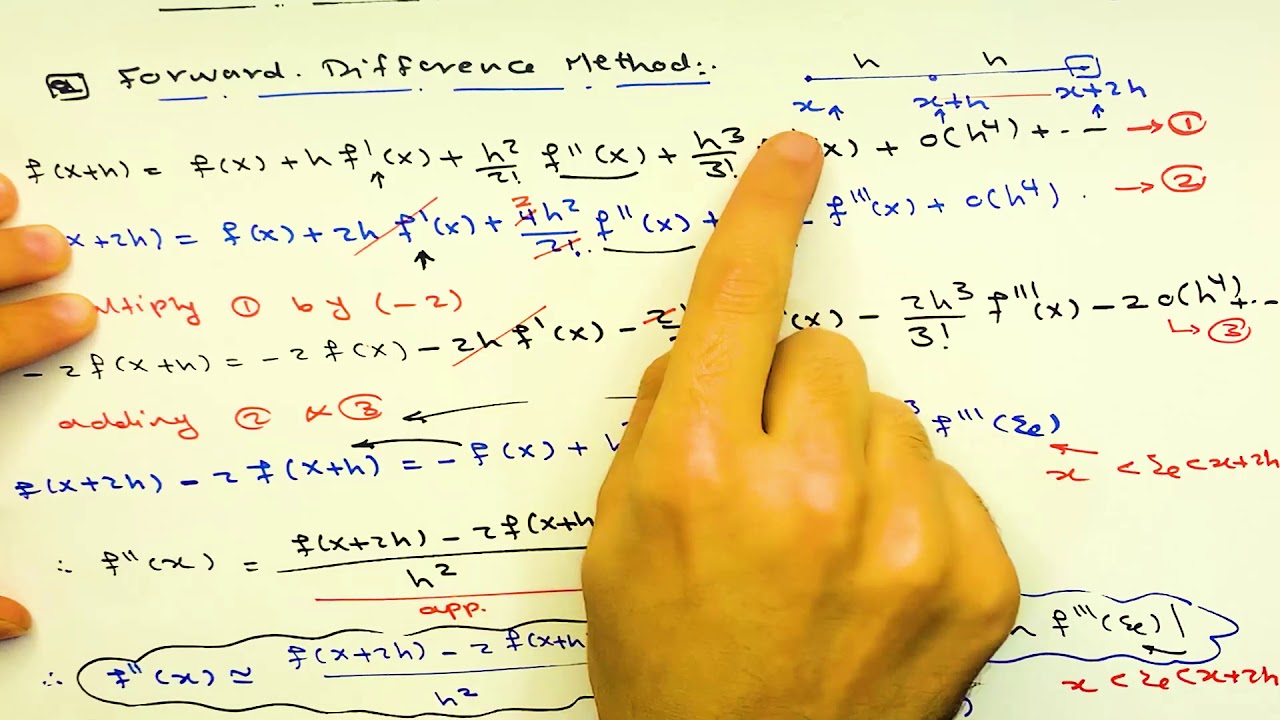 a Forward. Difference Method:.
h h
x x+h x+2h
f(x+h) = f(x) + h f'(x) + h²/2! f''(x) + h³/3! (x) + O(h⁴) + ... → ①
x+2h) = f(x) + 2h f'(x) + 4h²/2! 2 f''(x) + f'''(x) + O(h⁴). → ②
ltiply ① by (-2)
-2f(x+h) = -2f(x) - 2h f'(x) - 2 '(x) - 2h³/3! f'''(x) - 2O(h⁴) + ...
↳ ③
adding ② & ③ ←
f(x+2h) - 2f(x+h) = -f(x) + h ³ f'''(ξe)
x < ξe < x+2h
∴ f''(x) = f(x+2h) - 2f(x+h / h²
app.
∴ f''(x) ≃ f(x+2h) - 2f(x+h / h² h f'''(ξe)|
x < ξe < x+2h